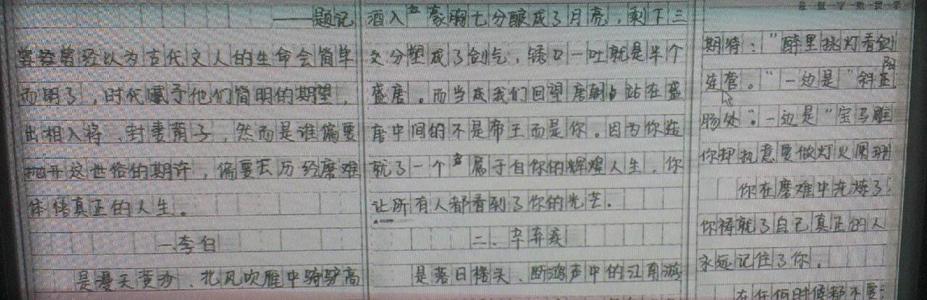 ——题记
曾经曾经以为古代文人的生命会简单
而明了，时代赋予他们简明的期望，
出相入将、封妻荫子，然而是谁偏要
抛开这世俗的期许，偏要去历经磨难
体悟真正的人生。
一、李白
是漫天黄沙、北风吹雁中骑驴高
酒入豪肠七分酿成了月亮，剩下三
文分塑成了剑气，绣口一吐就是半个
盛唐。而当我们回望唐朝，站在盛
唐中间的不是帝王而是你。因为你造
就了一个属于自你的辉煌人生，你
让所有人都看到了你的光芒。
二、辛弃疾
是落日楼头、断鸿声中的江南游
期待："醉里挑灯看剑
连营。"一边是"斜阳
肠处。一边是"宝马雕
你却执意要做灯火阑珊
你在磨难中洗炼了
你铸就了自己真正的人
永远记住了你。
在任何时候都不要